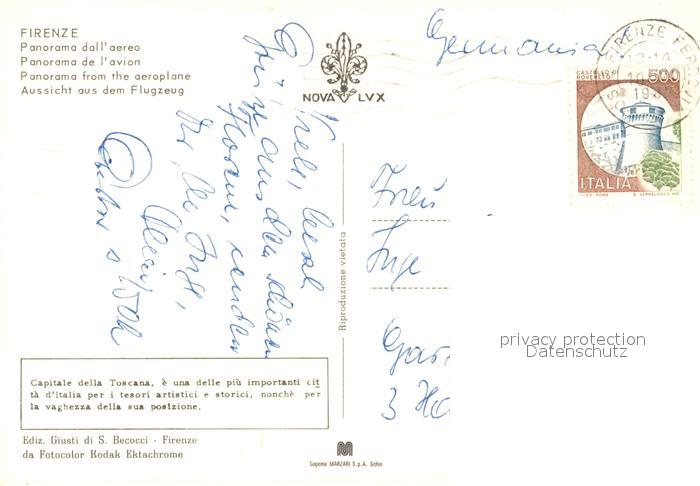 FIRENZE
Panorama dall'aereo
Panorama de l'avion
Panorama from the aeroplane
Aussicht aus dem Flugzeug
NOVA LVX
Germania
FIRENZE
CASTELLO DI
ROVERETO
500
ITALIA
Viele, liebe
Grüße aus dem schönen
Florenz, senden
Dir, liebe Inge,
Riproduzione vietata
Frau
Inge
3 Ha
privacy protection
Datenschutz
Capitale della Toscana, è una delle più importanti cit
tà d'Italia per i tesori artistici e storici, nonchè per
la vaghezza della sua posizione.
Ediz. Giusti di S. Becocci - Firenze
da Fotocolor Kodak Ektachrome
M
Sagoma MARZARI S.p.A. Schio